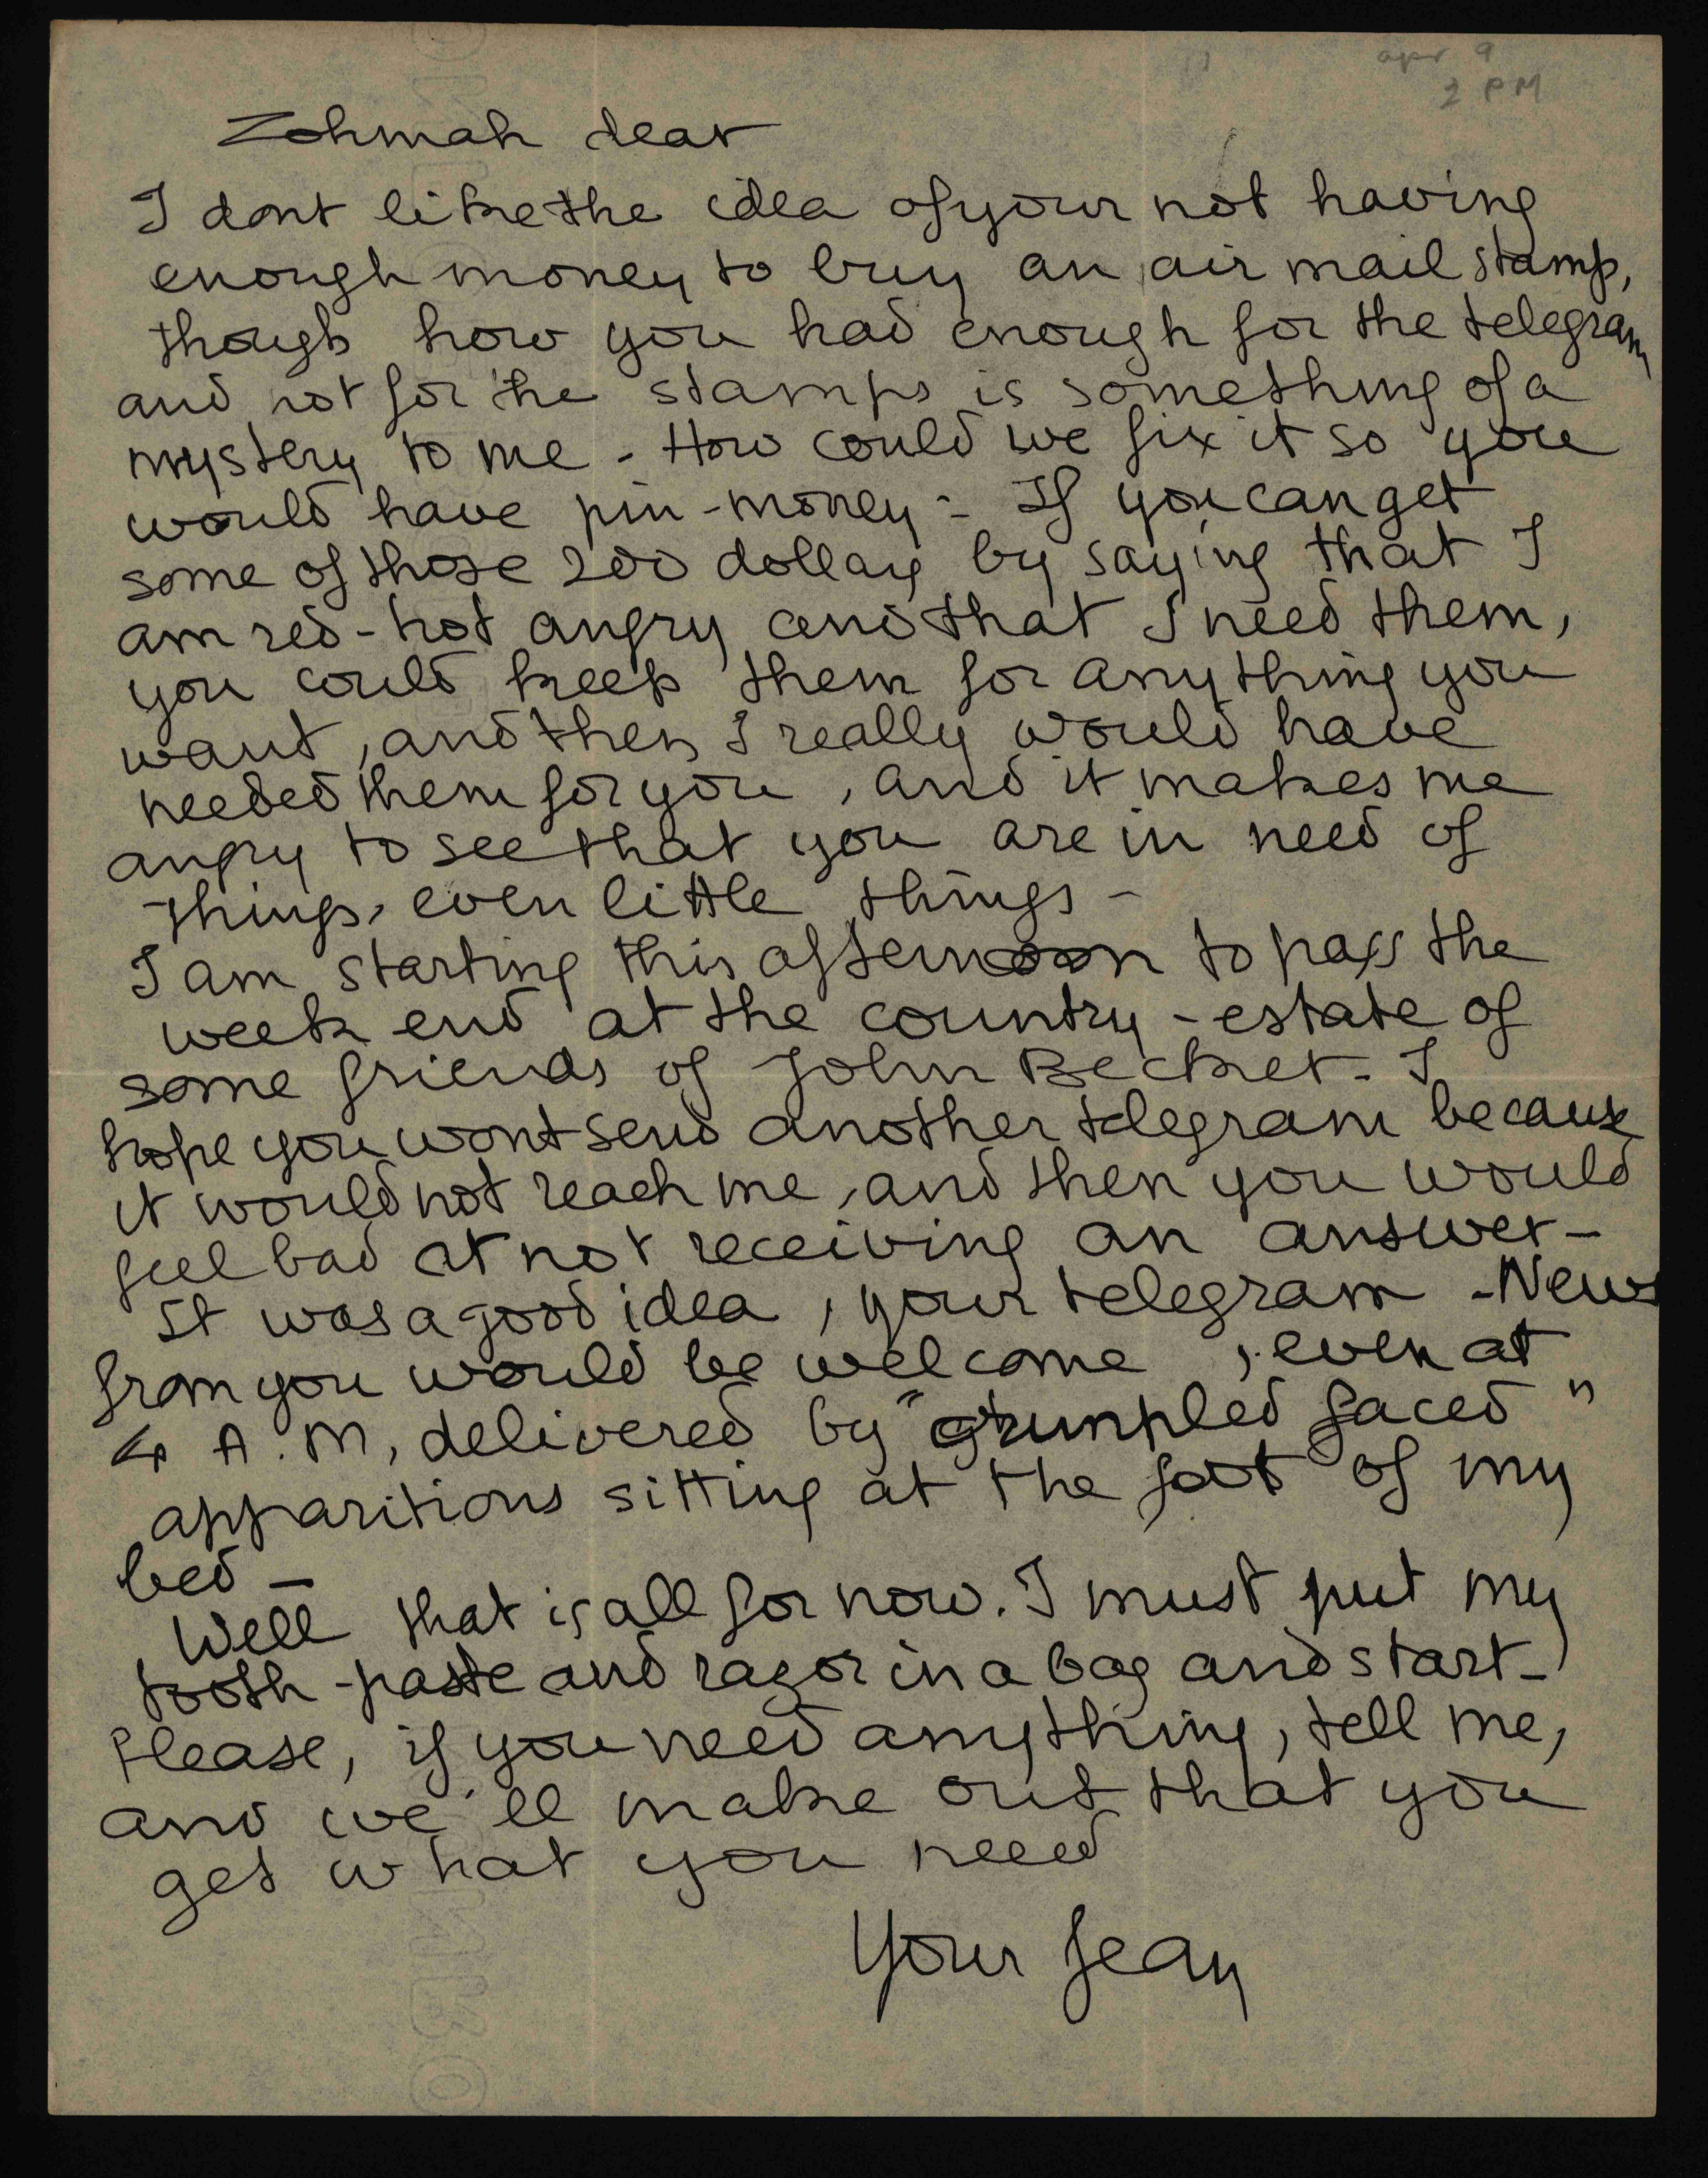 apr 9
2 PM
Zohmah dear
I dont like the idea of your not having
enough money to buy an air mail stamp,
though how you had enough for the telegram
and not for the stamps is something of a
mystery to me - How could we fix it so you
would have pin-money - If you can get
some of those 200 dollars by saying that I
am red-hot angry and that I need them,
you could keep them for anything you
want, and then I really would have
needed them for you, and it makes me
angry to see that you are in need of
things, even little things -
I am starting this afternoon to pass the
week end at the country-estate of
some friends of John Becket. I
hope you wont send another telegram because
it would not reach me, and then you would
feel bad at not receiving an answer -
It was a good idea, your telegram - News
from you would be welcome, even at
4 A.M, delivered by "grumpled faced"
apparitions sitting at the foot of my
bed -
Well that is all for now. I must put my
tooth-paste and razor in a bag and start -
Please, if you need anything, tell me,
and we'll make out that you
get what you need
Your Jean